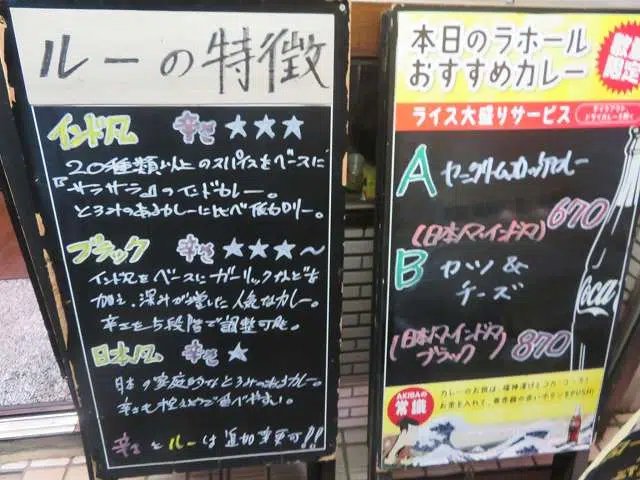 ルーの特徴
インド風 辛さ ★★★
20種類以上のスパイスをベースに
『サラサラ』のインドカレー。
とろみのあるカレーに比べ低カロリー。
ブラック 辛さ ★★★〜
インド風をベースにガーリックなどを
加え、深みが増した人気なカレー。
辛さを5段階で調整可能。
日本風 辛さ ★
日本の家庭的なとろみのあるカレー。
辛さも控えめで食べやすい。
辛さとルーは追加変更可!!
本日のラホール
おすすめカレー
数量
限定
ライス大盛りサービス
テイクアウト
ドライカレーを除く
A
670
(日本風、インド風)
B カツ &
チーズ
(日本風インド風
ブラック) 870
Coca
AKIBAの
常識
カレーのお供は、福神漬けとコカ・コーラ!